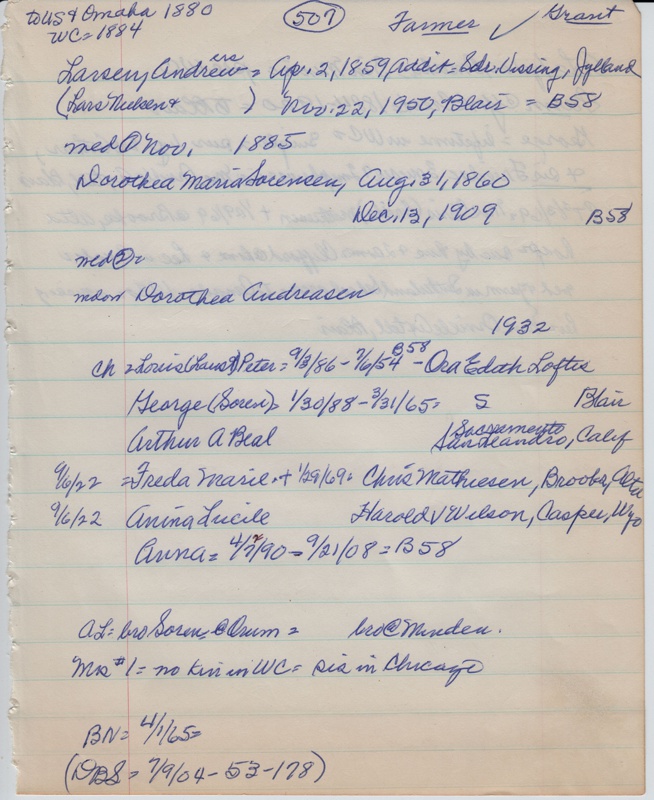 to US & Omaha 1880 507 Farmer ✓ Grant
WC = 1884
Larsen, Andrew ers = Ap. 2, 1859, Addit = Sdr. Vissing, Jylland
(Lars Nielsen & ) Nov. 22, 1950, Blair = B58
med ① Nov. 1885
Dorothea Maria Sorensen, Aug. 31, 1860
Dec. 13, 1909 B58
med ② =
mdow Dorothea Andreasen
1932
Ch = Louis (Laust) Peter = 9/3/86 - 7/6/54 B58 - Ora Edith Loftis
George (Soren) = 1/30/88 - 3/31/65 = S Blair
Arthur A Beal Sacramento
San Leandro, Calif
9/6/22 = Freda Marie + 1/29/69 = Chris Mathiesen, Brooks, Alta
9/6/22 Anina Lucile Harold V Wilson, Casper, Wyo
Anna = 4/2/90 - 9/21/08 = B58
AL = bro Soren @ Orum = bro @ Minden.
Mrs #1 = no kin in WC = sis in Chicago
BN = 4/1/65 =
(DBS = 7/9/04 - 53 - 178)